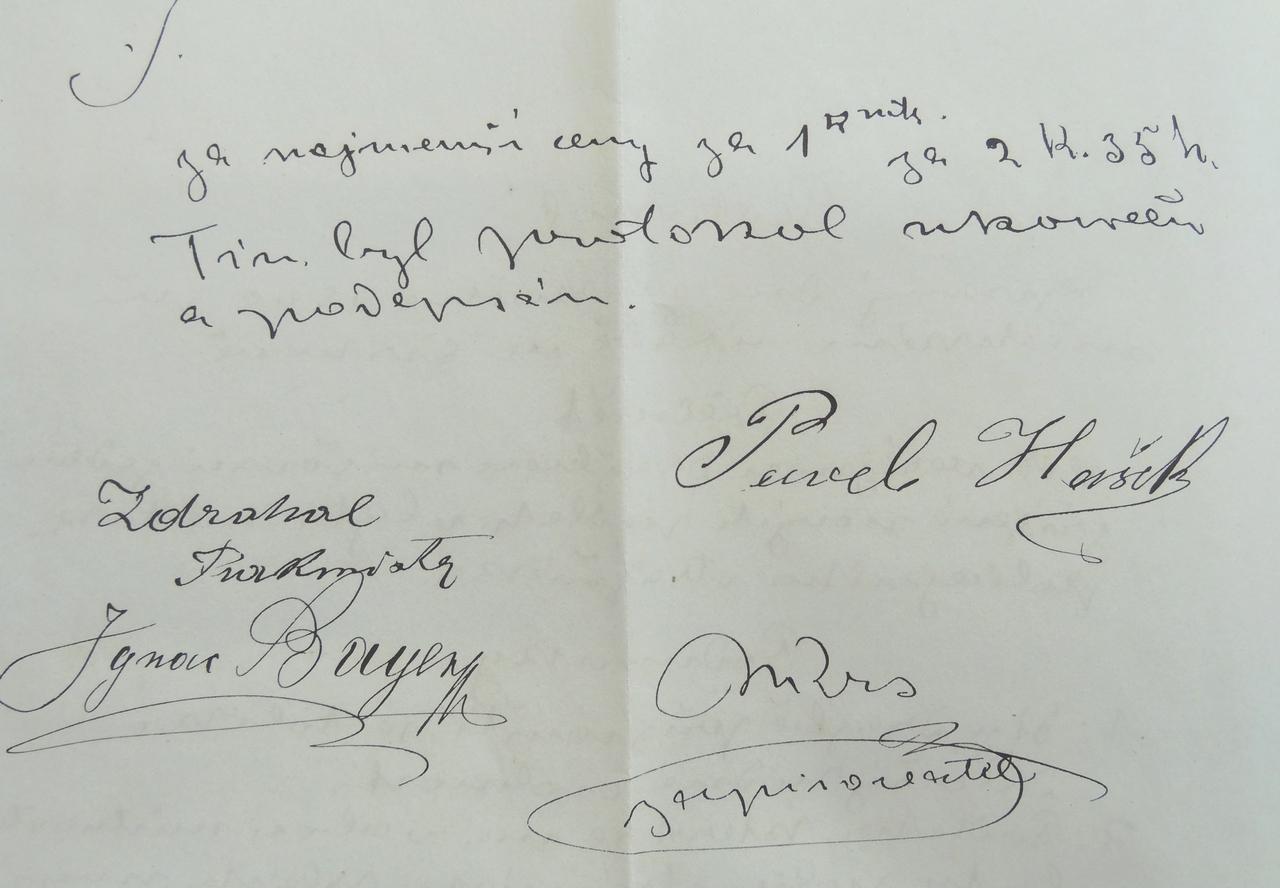 za nejmenší ceny za 1 za 2 K. 35 h.
Tím byl protokol ukončen
a podepsán.
Pavel Hašek
Zdrahal
Ignac Bayer
zapisovatel